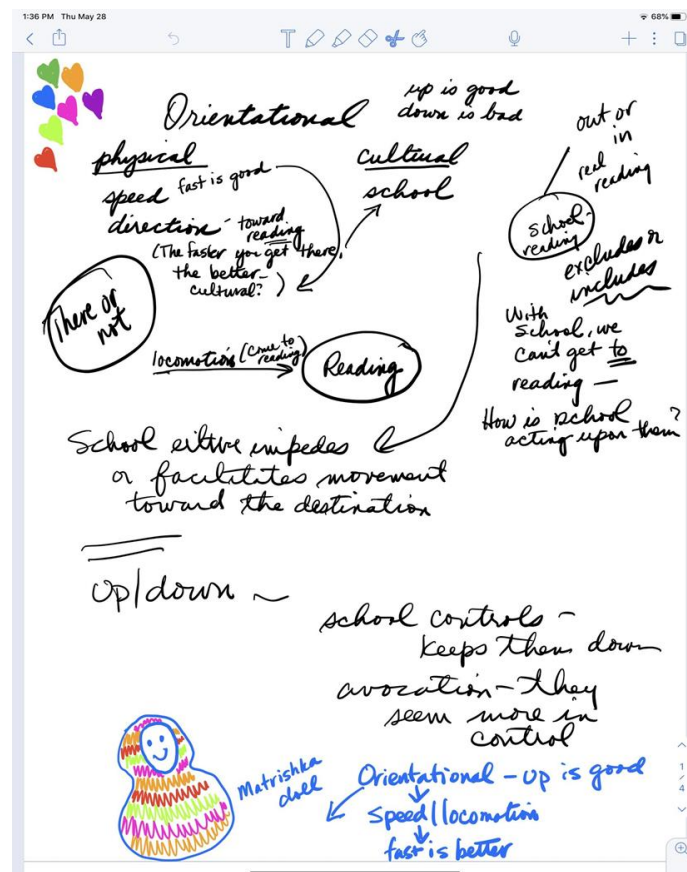 1:36 PM Thu May 28
68%
T
Orientational
up is good
down is bad
physical
speed fast is good
direction - toward
reading
(The faster you get there,
the better -
cultural?)
cultural
school
out or
in
real
reading
school-
reading
excludes or
includes
With
school, we
can't get to
reading —
How is school
acting upon them?
There or
not
locomotion (come to
reading)
Reading
School either impedes
or facilitates movement
toward the destination
up/down ~
school controls -
keeps them down
avocation - they
seem more in
control
Matrishka
doll
Orientational - up is good
speed/locomotion
fast is better
1
4